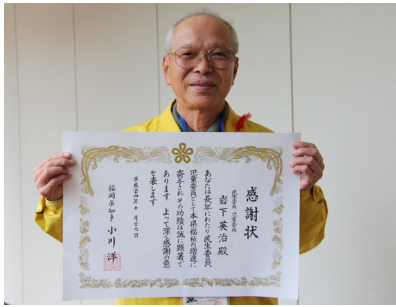 感謝状
民生委員・児童委員
岩下英治殿
あなたは長年にわたり民生委員
児童委員として本県福祉の増進に
寄与されその功績は誠に顕著で
あります よって深く感謝の意
を表します
平成二十四年十一月二十六日
福岡県知事 小川洋